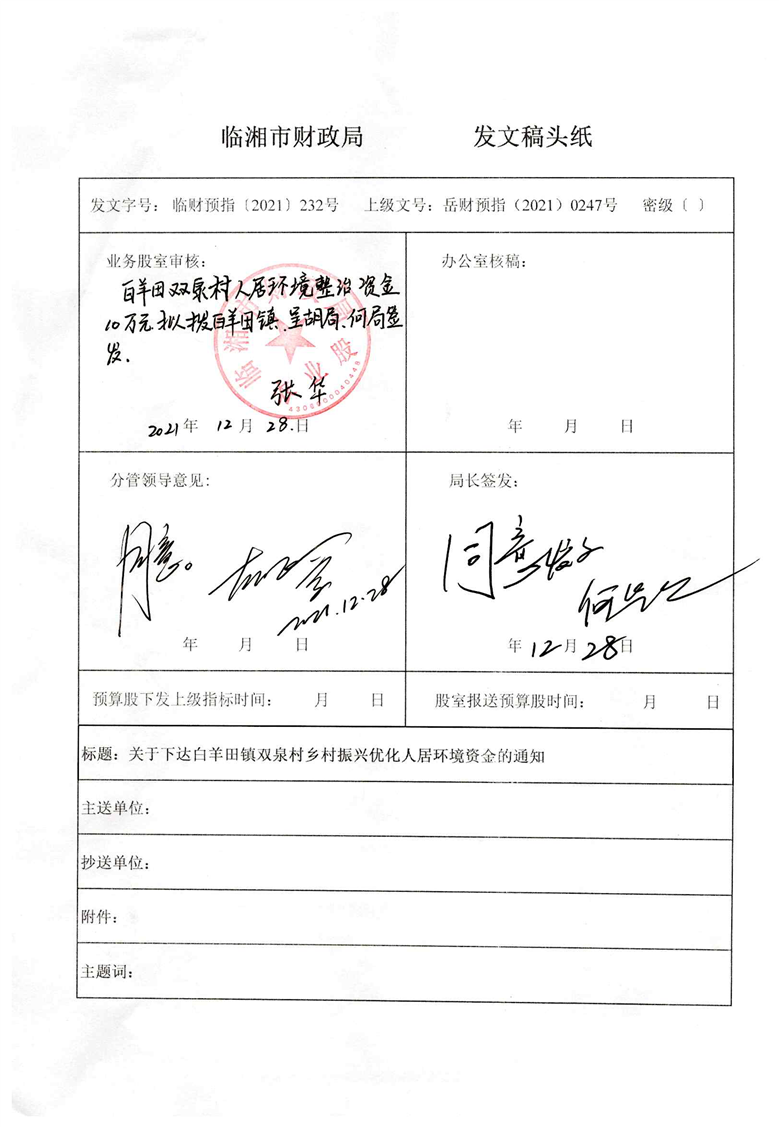 临湘市财政局 发文稿头纸
发文字号： 临财预指〔2021〕232号 上级文号：岳财预指（2021）0247号 密级〔 〕
业务股室审核：
白羊田双泉村人居环境整治资金
10万元拟拨白羊田镇.呈胡局、何局签
发.
张华
2021年 12月 28.日
办公室核稿：
年 月 日
分管领导意见：
同意。
2021.12.28
年 月 日
局长签发：
同意发文
年 12月 28日
预算股下发上级指标时间： 月 日
股室报送预算股时间： 月 日
标题：关于下达白羊田镇双泉村乡村振兴优化人居环境资金的通知
主送单位：
抄送单位：
附件：
主题词：